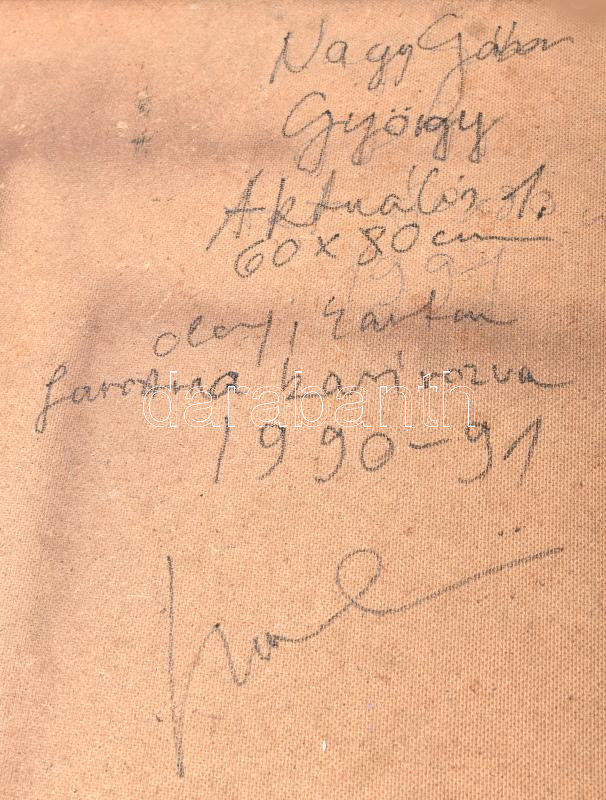 Nagy Gábor
György
Aktuális 1.
60 x 80 cm
1991
olaj, karton
farostra kasírozva
darabanth
1990-91